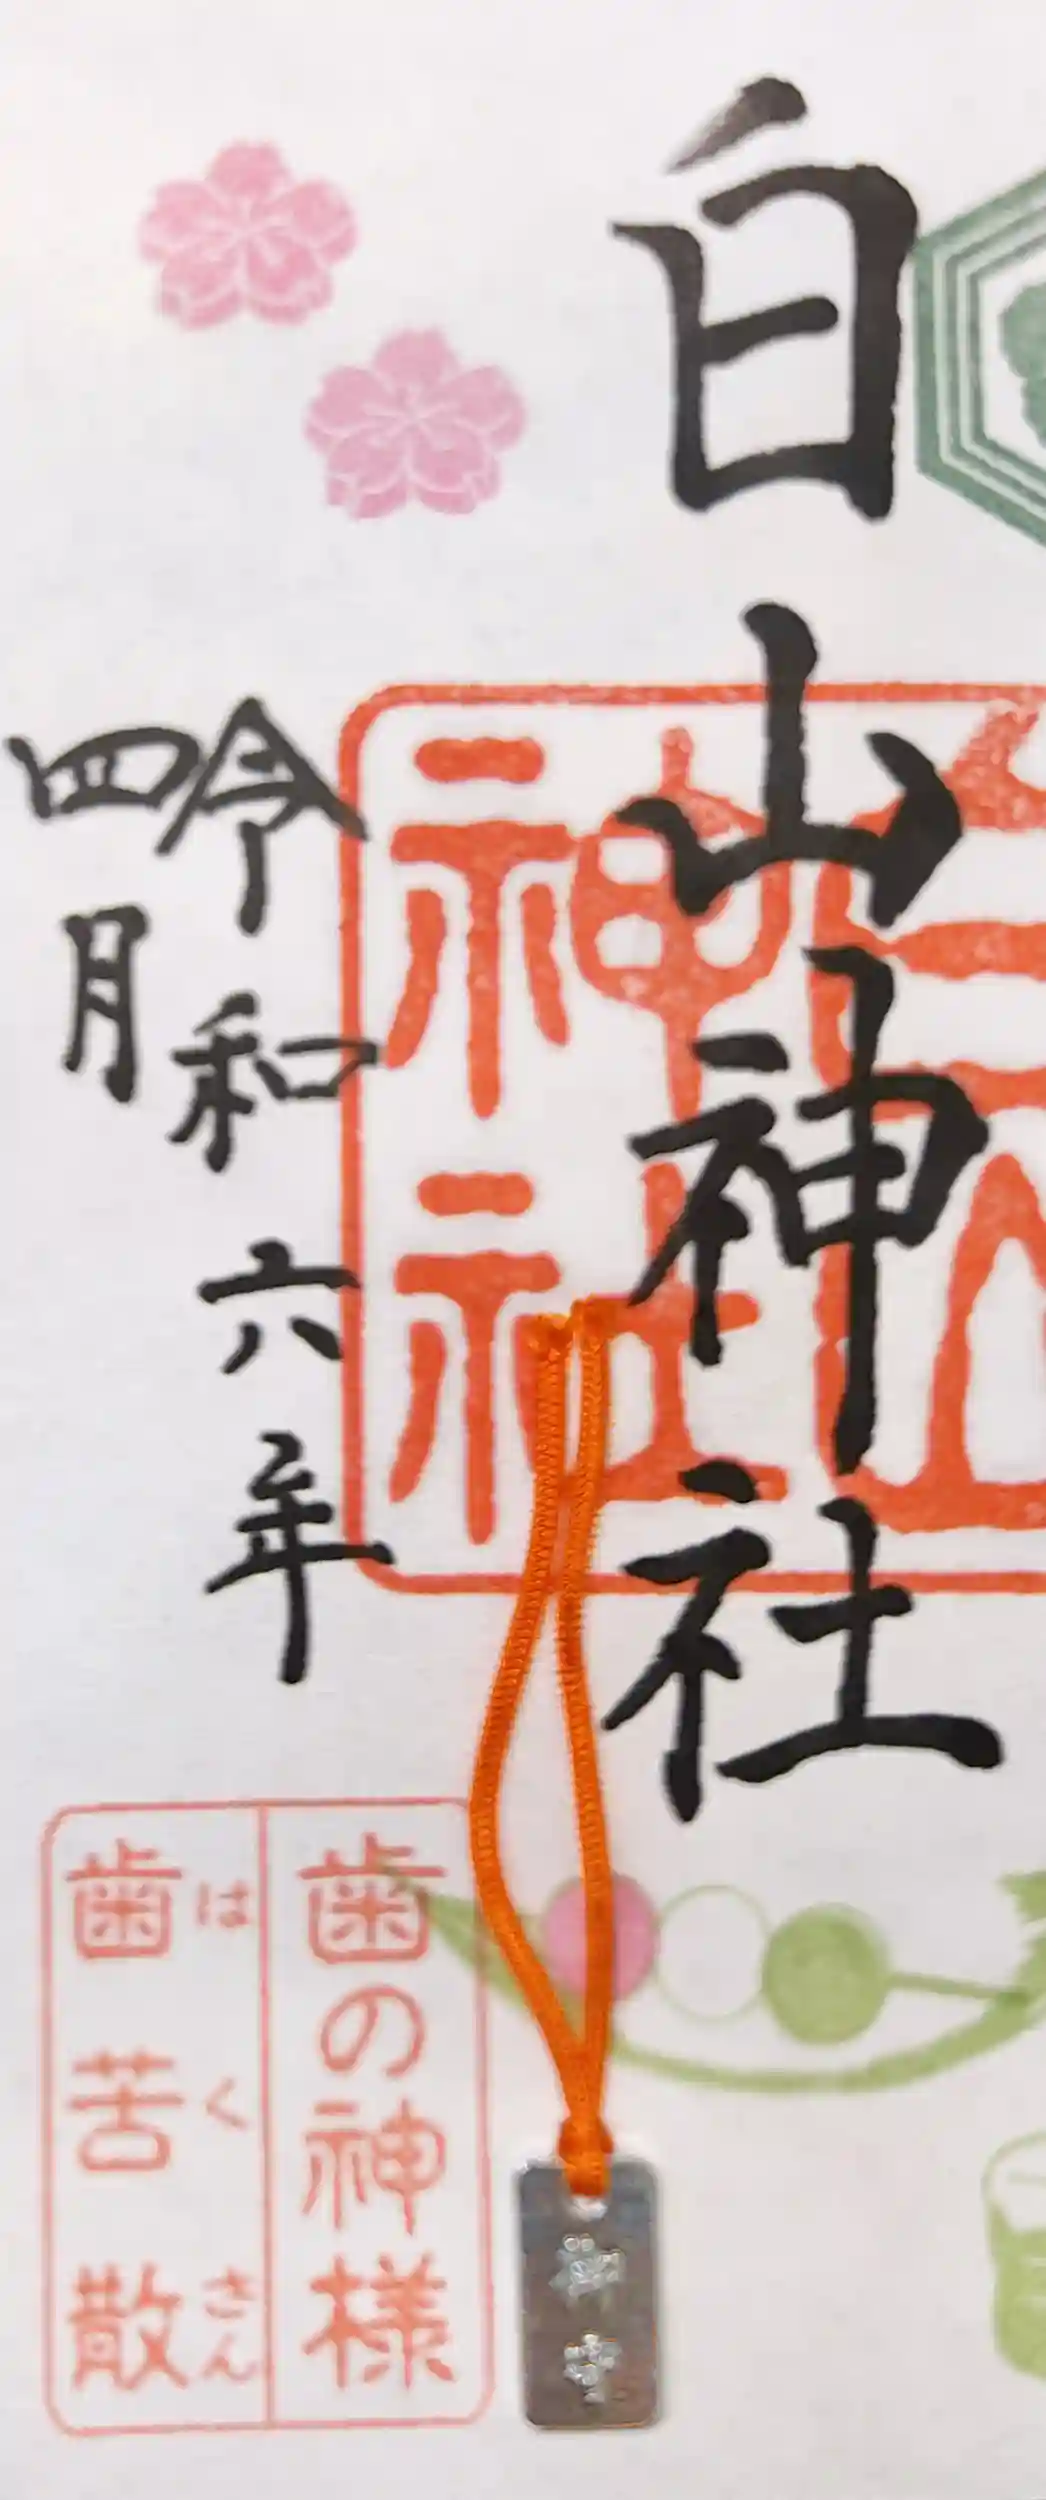 白山神社
令和六年
四月
白山
神社
歯の神様
歯苦散
はくさん
御守